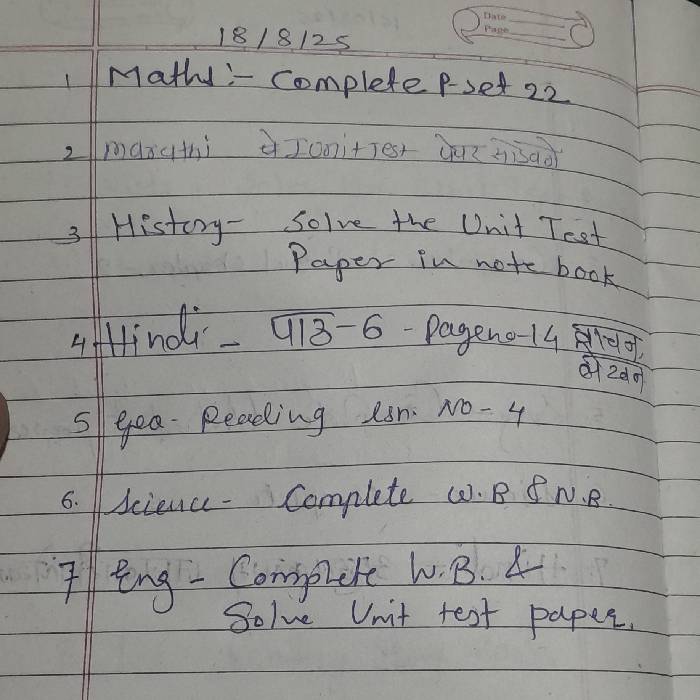 Date
Page
18/8/25
1 Maths:- Complete P-set 22
2 Marathi चे I Unit Test पेपर सोडवणे
3 History- Solve the Unit Test
Paper in note book
4 Hindi - पाठ-6 - Pageno-14 वाचन,
लेखन
5 Geo- Reading lsn. No-4
6. Science- Complete W.B & N.B.
7 Eng - Complete W.B. &
Solve Unit test paper.